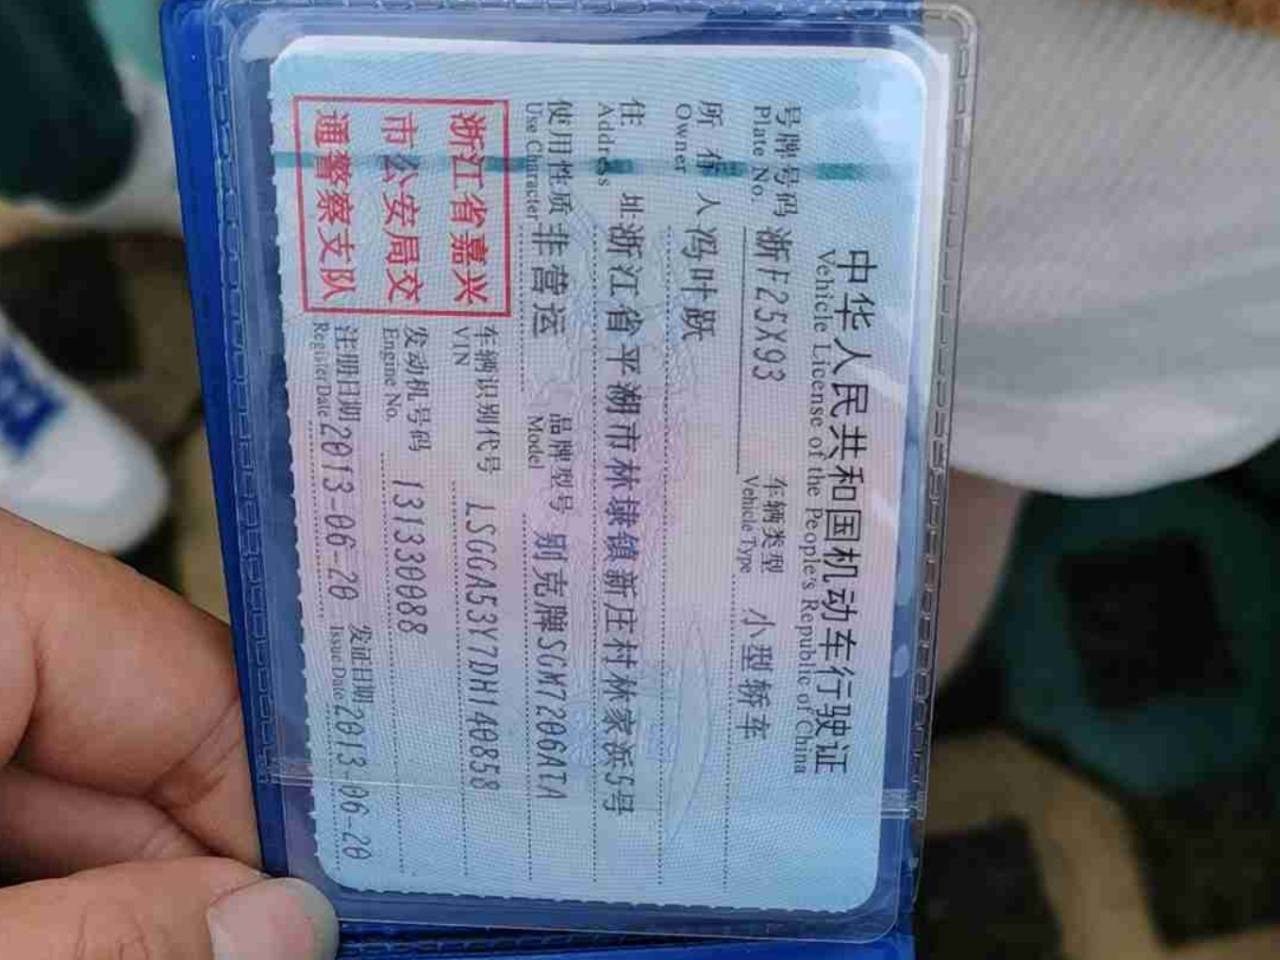 中华人民共和国机动车行驶证
Vehicle License of the People's Republic of China
号牌号码 浙F25X93 车辆类型 小型轿车
Plate No. Vehicle Type
所有人 冯叶跃
Owner
住址 浙江省平湖市林埭镇新庄村林家浜5号
Address
使用性质 非营运 品牌型号 别克牌SGM7206ATA
Use Character Model
浙江省嘉兴
市公安局交
通警察支队
车辆识别代号 LSGGA53Y7DH140858
VIN
发动机号码 131330088
Engine No.
注册日期 2013-06-20 发证日期 2013-06-20
Register Date Issue Date